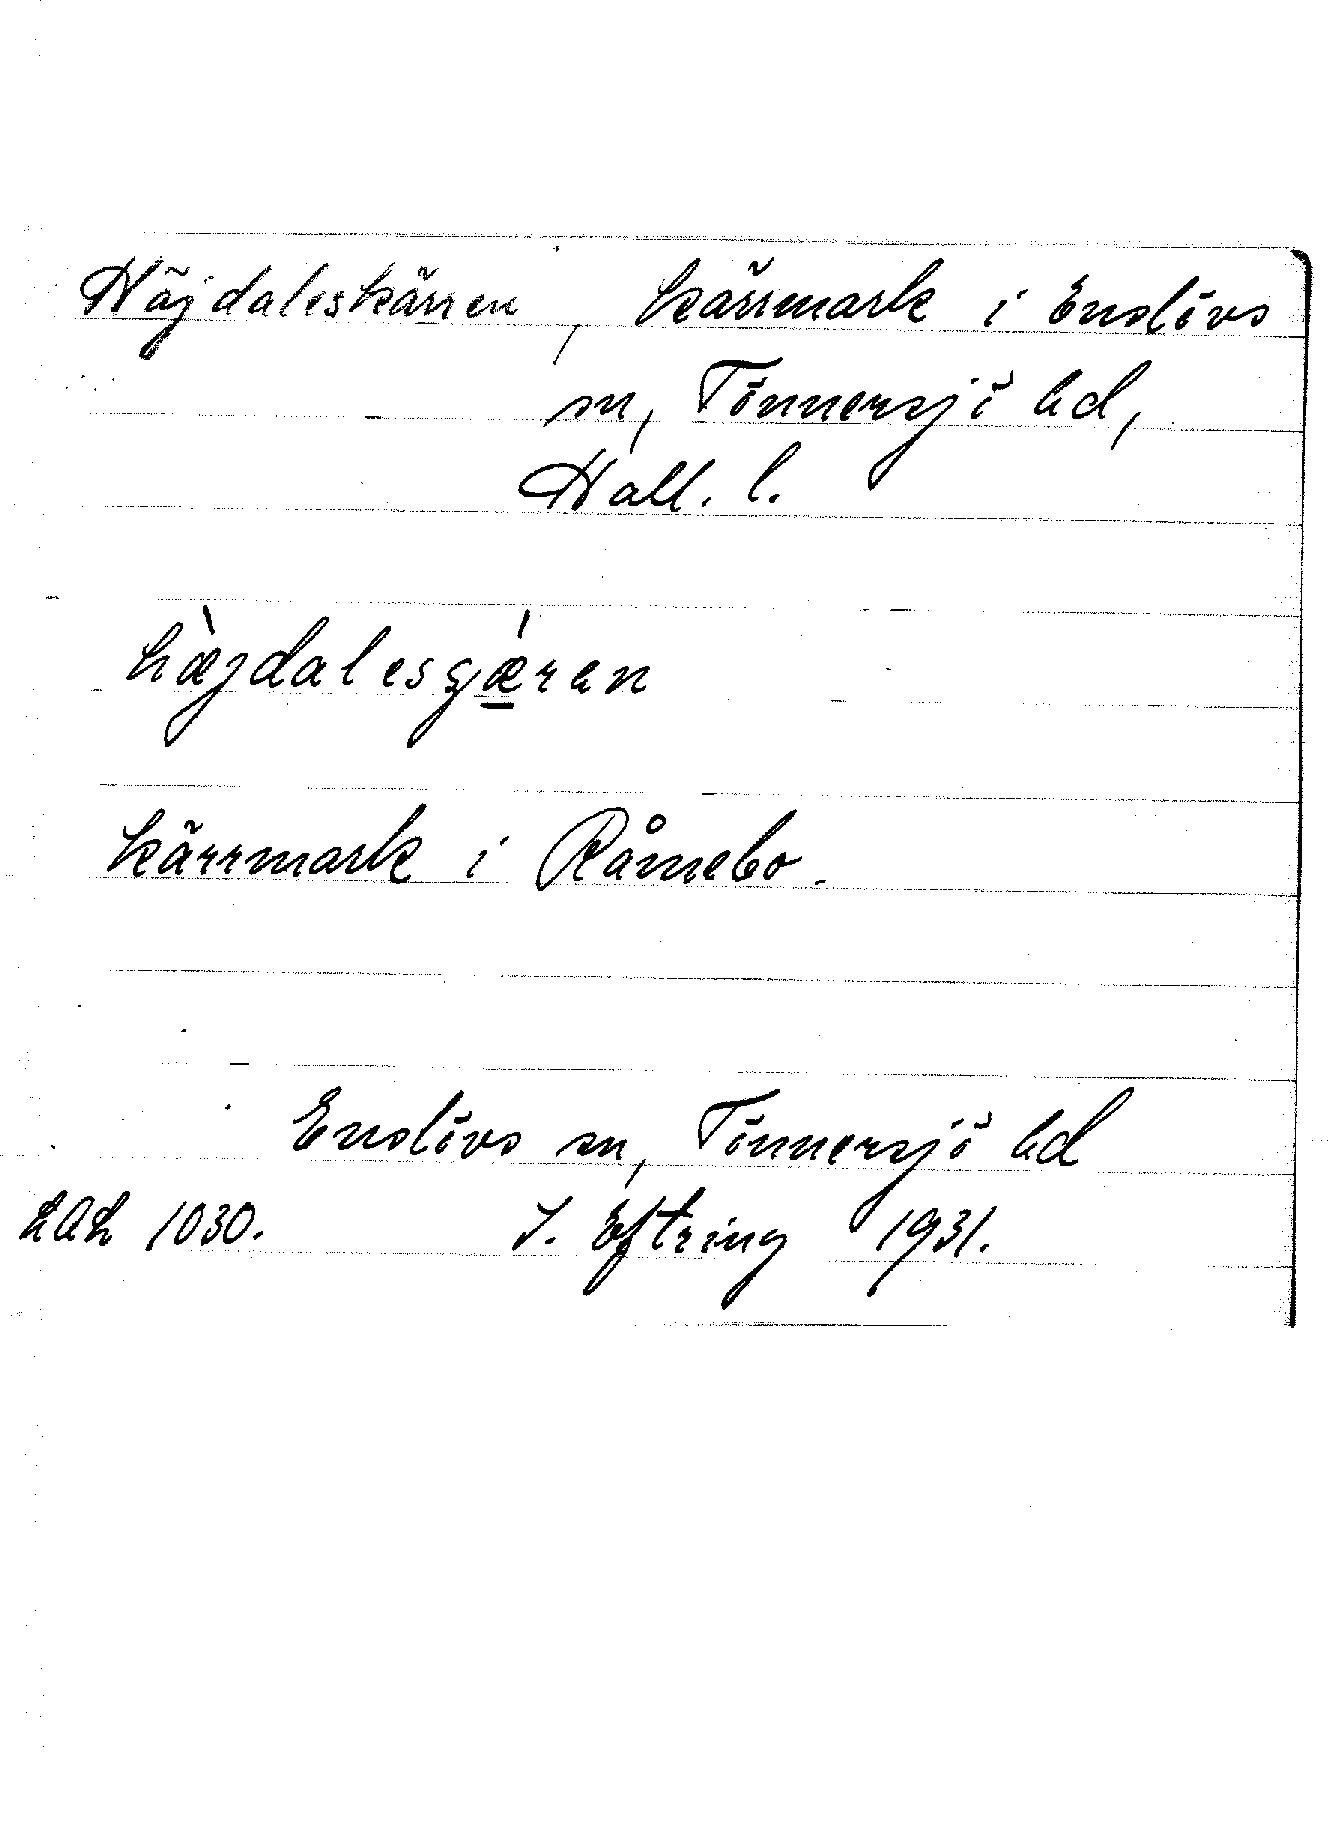 Häjdaleskärren, kärrmark i Enslövs
sn, Tönnersjö hd,
Hall. l.
hæ̀jdalesgjǽ̱ren
kärrmark i Råmebo.
Enslövs sn, Tönnersjö hd
LAL 1030. I. Eftring 1931.